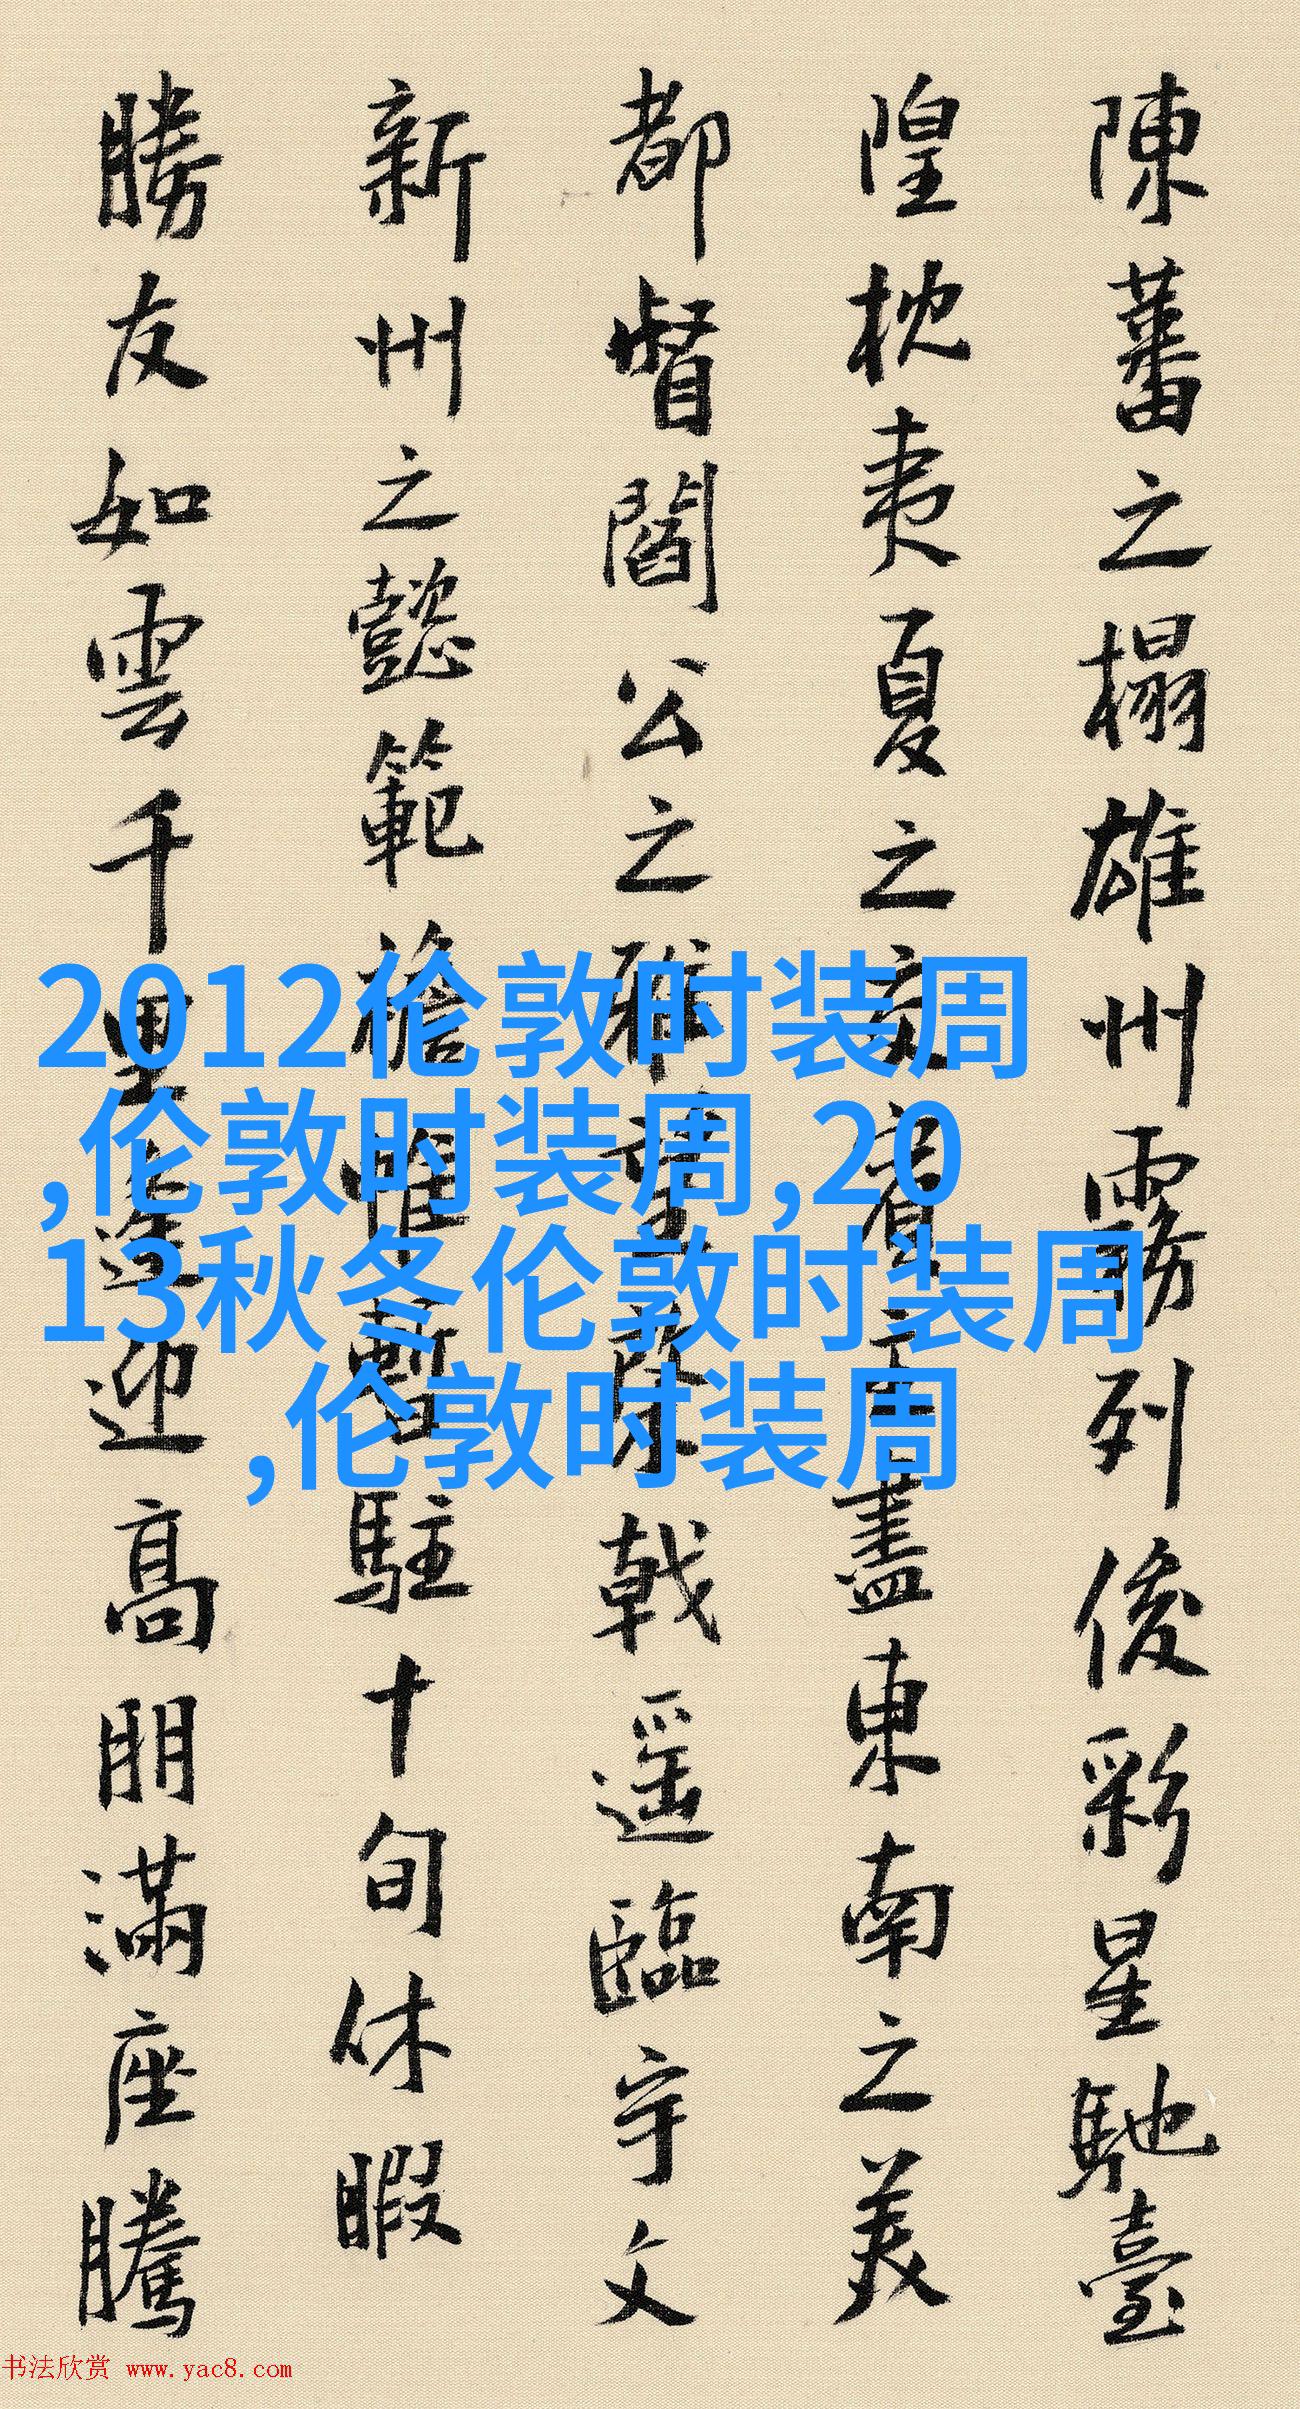 陳蕃之榻雄州霧列俊彩星馳臺
隍枕夷夏之交賓主盡東南之美
都督閻公之雅望棨戟遥臨宇文
新州之懿範襜帷暫駐十旬休暇
勝友如雲千里逢迎髙朋滿座騰
2012伦敦时装周
,伦敦时装周,20
13秋冬伦敦时装周
,伦敦时装周
书法欣赏 www.yac8.com